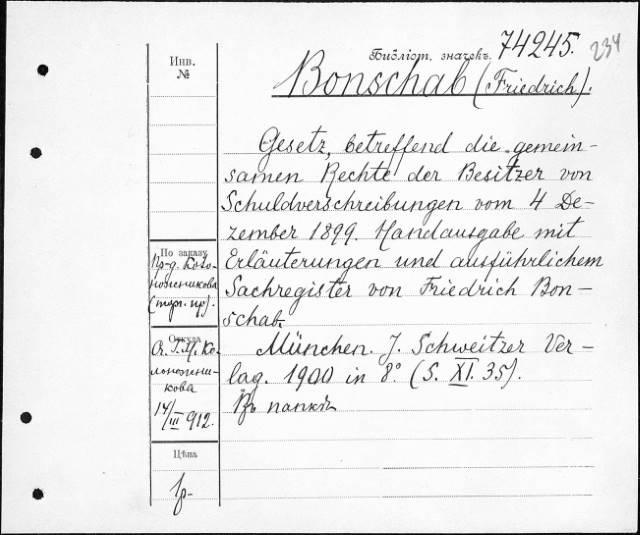 Библіот. значекъ. 74245. 234
Инв.
№
Bonschab (Friedrich).
Gesetz, betreffend die gemein-
samen Rechte der Besitzer von
Schuldverschreibungen vom 4 De-
zember 1899. Handausgabe mit
Erläuterungen und ausführlichem
Sachregister von Friedrich Bon-
schab.
München. J. Schweitzer Ver-
lag. 1900 in 8° (S. XI. 35).
Въ папкѣ
По заказу
Пр-д. Коло-
ножникова
(торг. пр).
Откуда
От Г. Я. Ко-
лоножни-
кова
14/III 912.
Цѣна
1р-